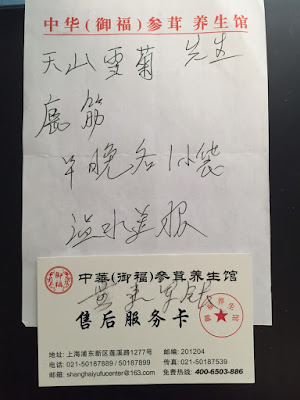 中华(御福)参茸 养生馆
天山雪菊 先生
鹿筋
早晚各1小袋
温水送服
御福
中華(御福)參茸養生馆
售后服务卡
地址: 上海浦东新区莲溪路1277号
邮编: 201204
电话: 021-50187889 / 50187899
传真: 021-50187539
邮箱: shanghaiyufucenter@163.com
免费热线: 400-6503-886